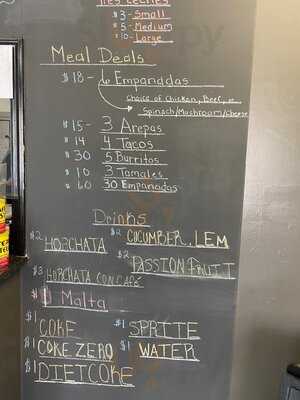 Tres Leches
$3 - Small
$5 - Medium
$10 - Large
Meal Deals
$18 - 6 Empanadas
choice of Chicken, Beef, or
Spinach/Mushroom/Cheese
$15 - 3 Arepas
$14 4 Tacos
$30 5 Burritos
$10 3 Tamales
$60 30 Empanadas
Drinks
$2 HORCHATA
$2 CUCUMBER, LEM
$2 PASSION FRUIT
$3 HORCHATA CON CAFE
Malta
$1 COKE
$1 SPRITE
$1 COKE ZERO
$1 WATER
$1 DIET COKE